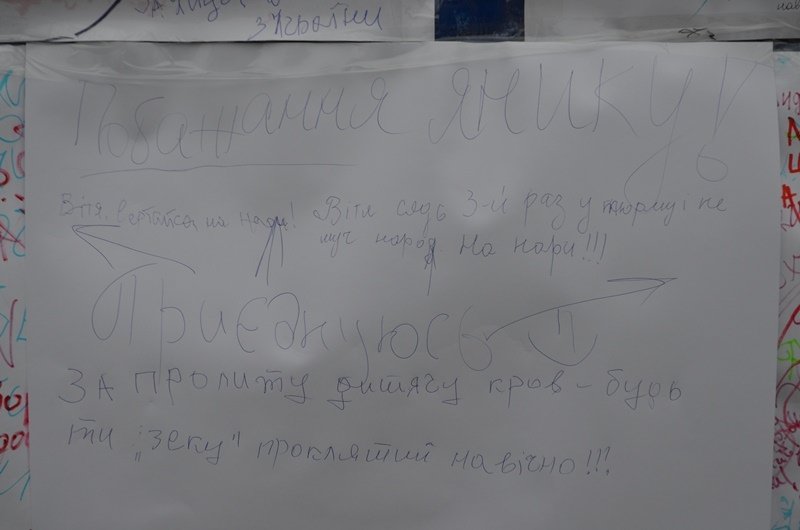 з України
Побажання ЯНИКУ!
Вітя вертайся на нари! Віти сядь 3-й раз у тюрму і не
муч народ На нари!!!
Приєднуюсь
ЗА ПРОЛИТУ дитячу кров - будь
ти "зеку" проклятий навічно!!!